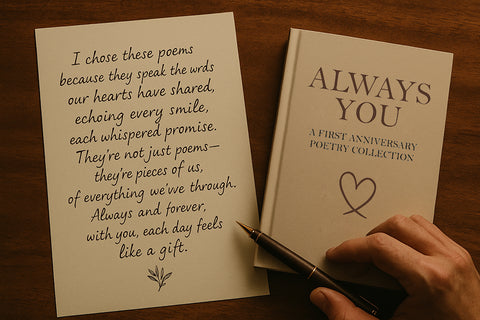 I chose these poems
because they speak the wrds
our hearts have shared,
echoing every smile,
each whispered promise.
They're not just poems—
they're pieces of us,
of everything we'vve through.
Always and forever,
with you, each day feels
like a gift.
ALWAYS
YOU
A FIRST ANNIVERSARY
POETRY COLLECTION